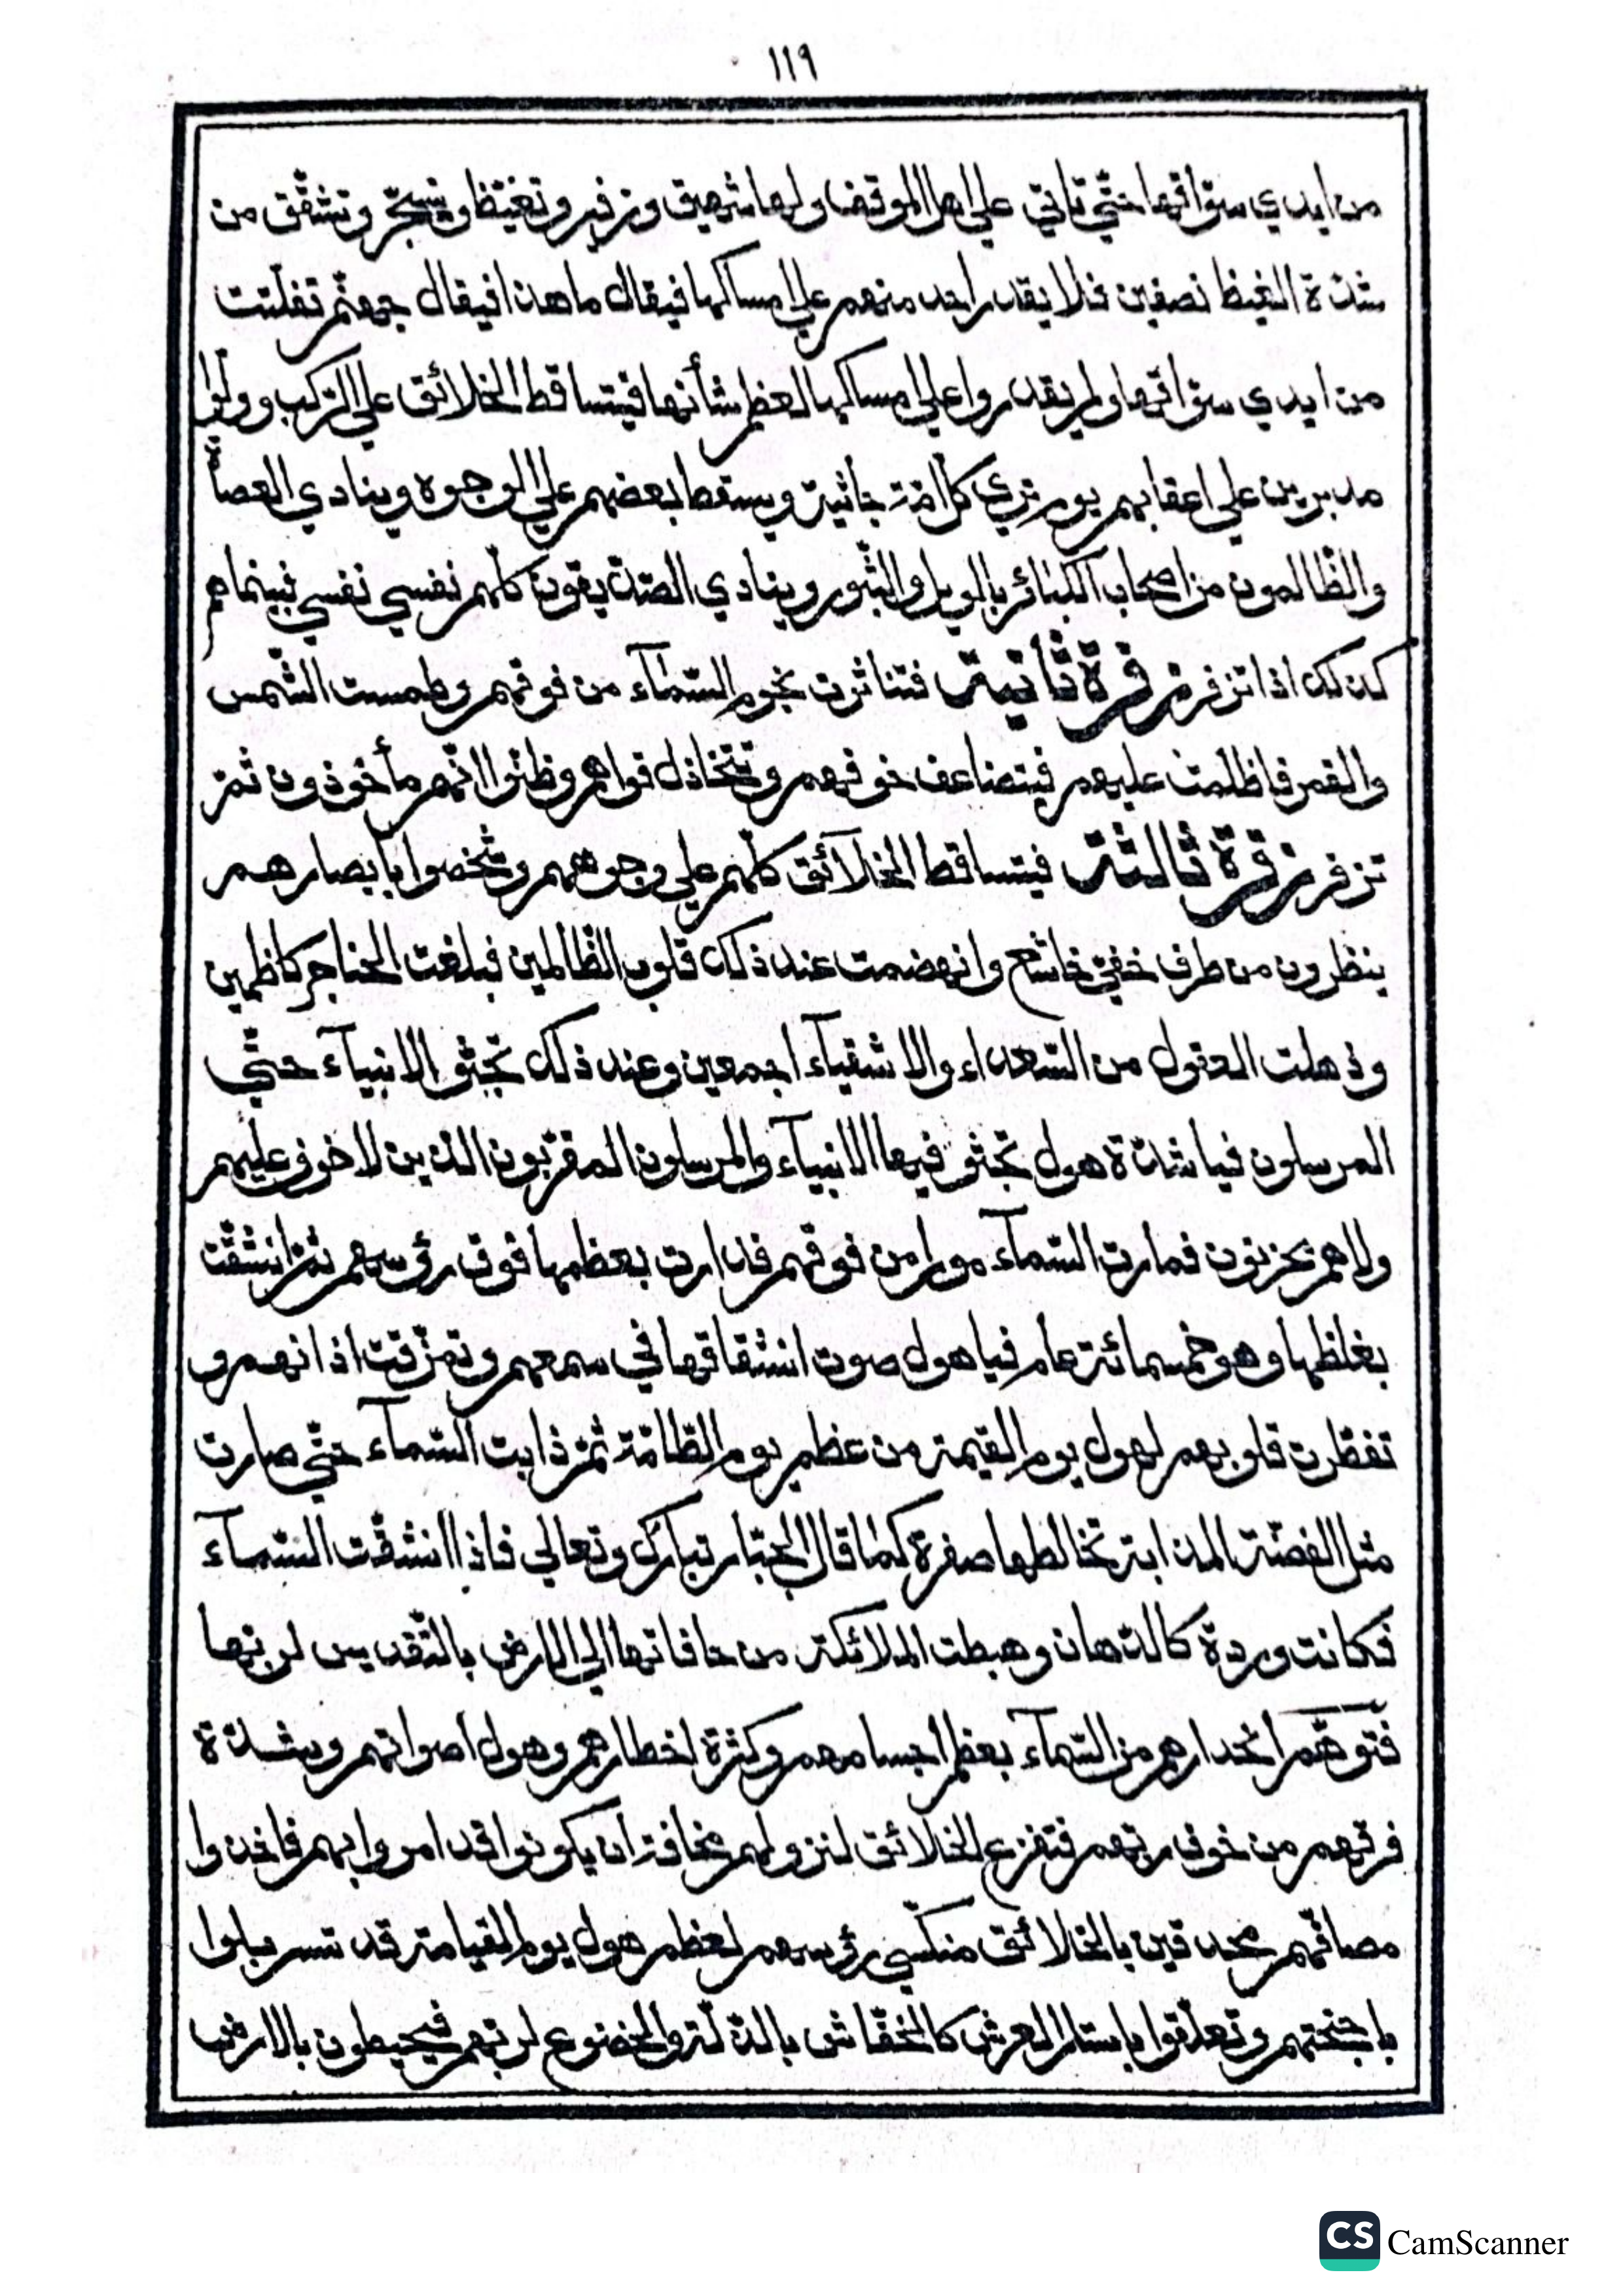 ١١٩
من ايدي سوّاقها حتّي تاتي علي اهل الموقف ولها شهيق وزفير وتغيّظ وتسجّر وتشقّق من
شدّة الغيظ نصفين فلا يقدر احد منهم علي امساكها فيقال ما هذا فيقال جهنّم تفلّتت
من ايدي سوّاقها ولم يقدروا علي امساكها لعظم شأنها فيتساقط الخلائق علي الرّكب وولّوا
مدبرين علي اعقابهم يوم تري كلّ امّة جاثية ويسقط بعضهم علي الوجوه وينادي العصاة
والظّالمون من اصحاب الكبائر بالويل والثّبور وينادي الصّدّيقون كلّهم نفسي نفسي فبينما هم
كذلك اذا تزفر زفرة ثانية فتناثرت نجوم السّمآء من فوقهم وطمست الشّمس
والقمر فاظلمت عليهم فيتضاعف خوفهم وتتخاذل قواهم وظنّوا انّهم مأخوذون ثمّ
تزفر زفرة ثالثة فيتساقط الخلآئق كلّهم علي وجوههم وشخصوا بابصارهم
ينظرون من طرف خفيّ خاشع وانهضمت عند ذلك قلوب الظّالمين فبلغت الحناجر كاظمين
وذهلت العقول من السّعداء والاشقيآء اجمعين وعند ذلك تجثو الانبيآء حتّي
المرسلون فيا شدّة هول تجثو فيها الانبيآء والمرسلون المقرّبون الذين لا خوف عليهم
ولا هم يحزنون فمارت السّمآء مورا من فوقهم فدارت بعظمها فوق رؤسهم ثمّ انشقّت
بغلظها وهو خمسمائة عام فيا هول صوت انشقاقها في سمعهم وتمزّقت اذانهم و
تفطّرت قلوبهم لهول يوم القيمة من عظيم يوم الطّامّة ثمّ ذابت السّمآء حتّي صارت
مثل الفضّة المذابة تخالطها صفرة كما قال الجبّار تبارك وتعالي فاذا انشقّت السّمآء
فكانت وردة كالدّهان وهبطت الملائكة من حافاتها الي الارض بالتّقديس لربّها
فتوهّم انحدارهم من السّمآء بعظم اجسامهم وكثرة اخطارهم وهول اصواتهم وشدّة
فرقهم من خوف ربّهم فتفزع الخلائق لنزولهم مخافة ان يكونوا قد امروا بهم فاخذوا
مصافّهم محدقين بالخلائق منكّسي رؤسهم لعظم هول يوم القيامة قد تسربلوا
باجنحتهم وتعلّقوا باستار العرش كالخفّاش بالذّلّة والخضوع لربّهم فيحيطون بالارض
CS CamScanner